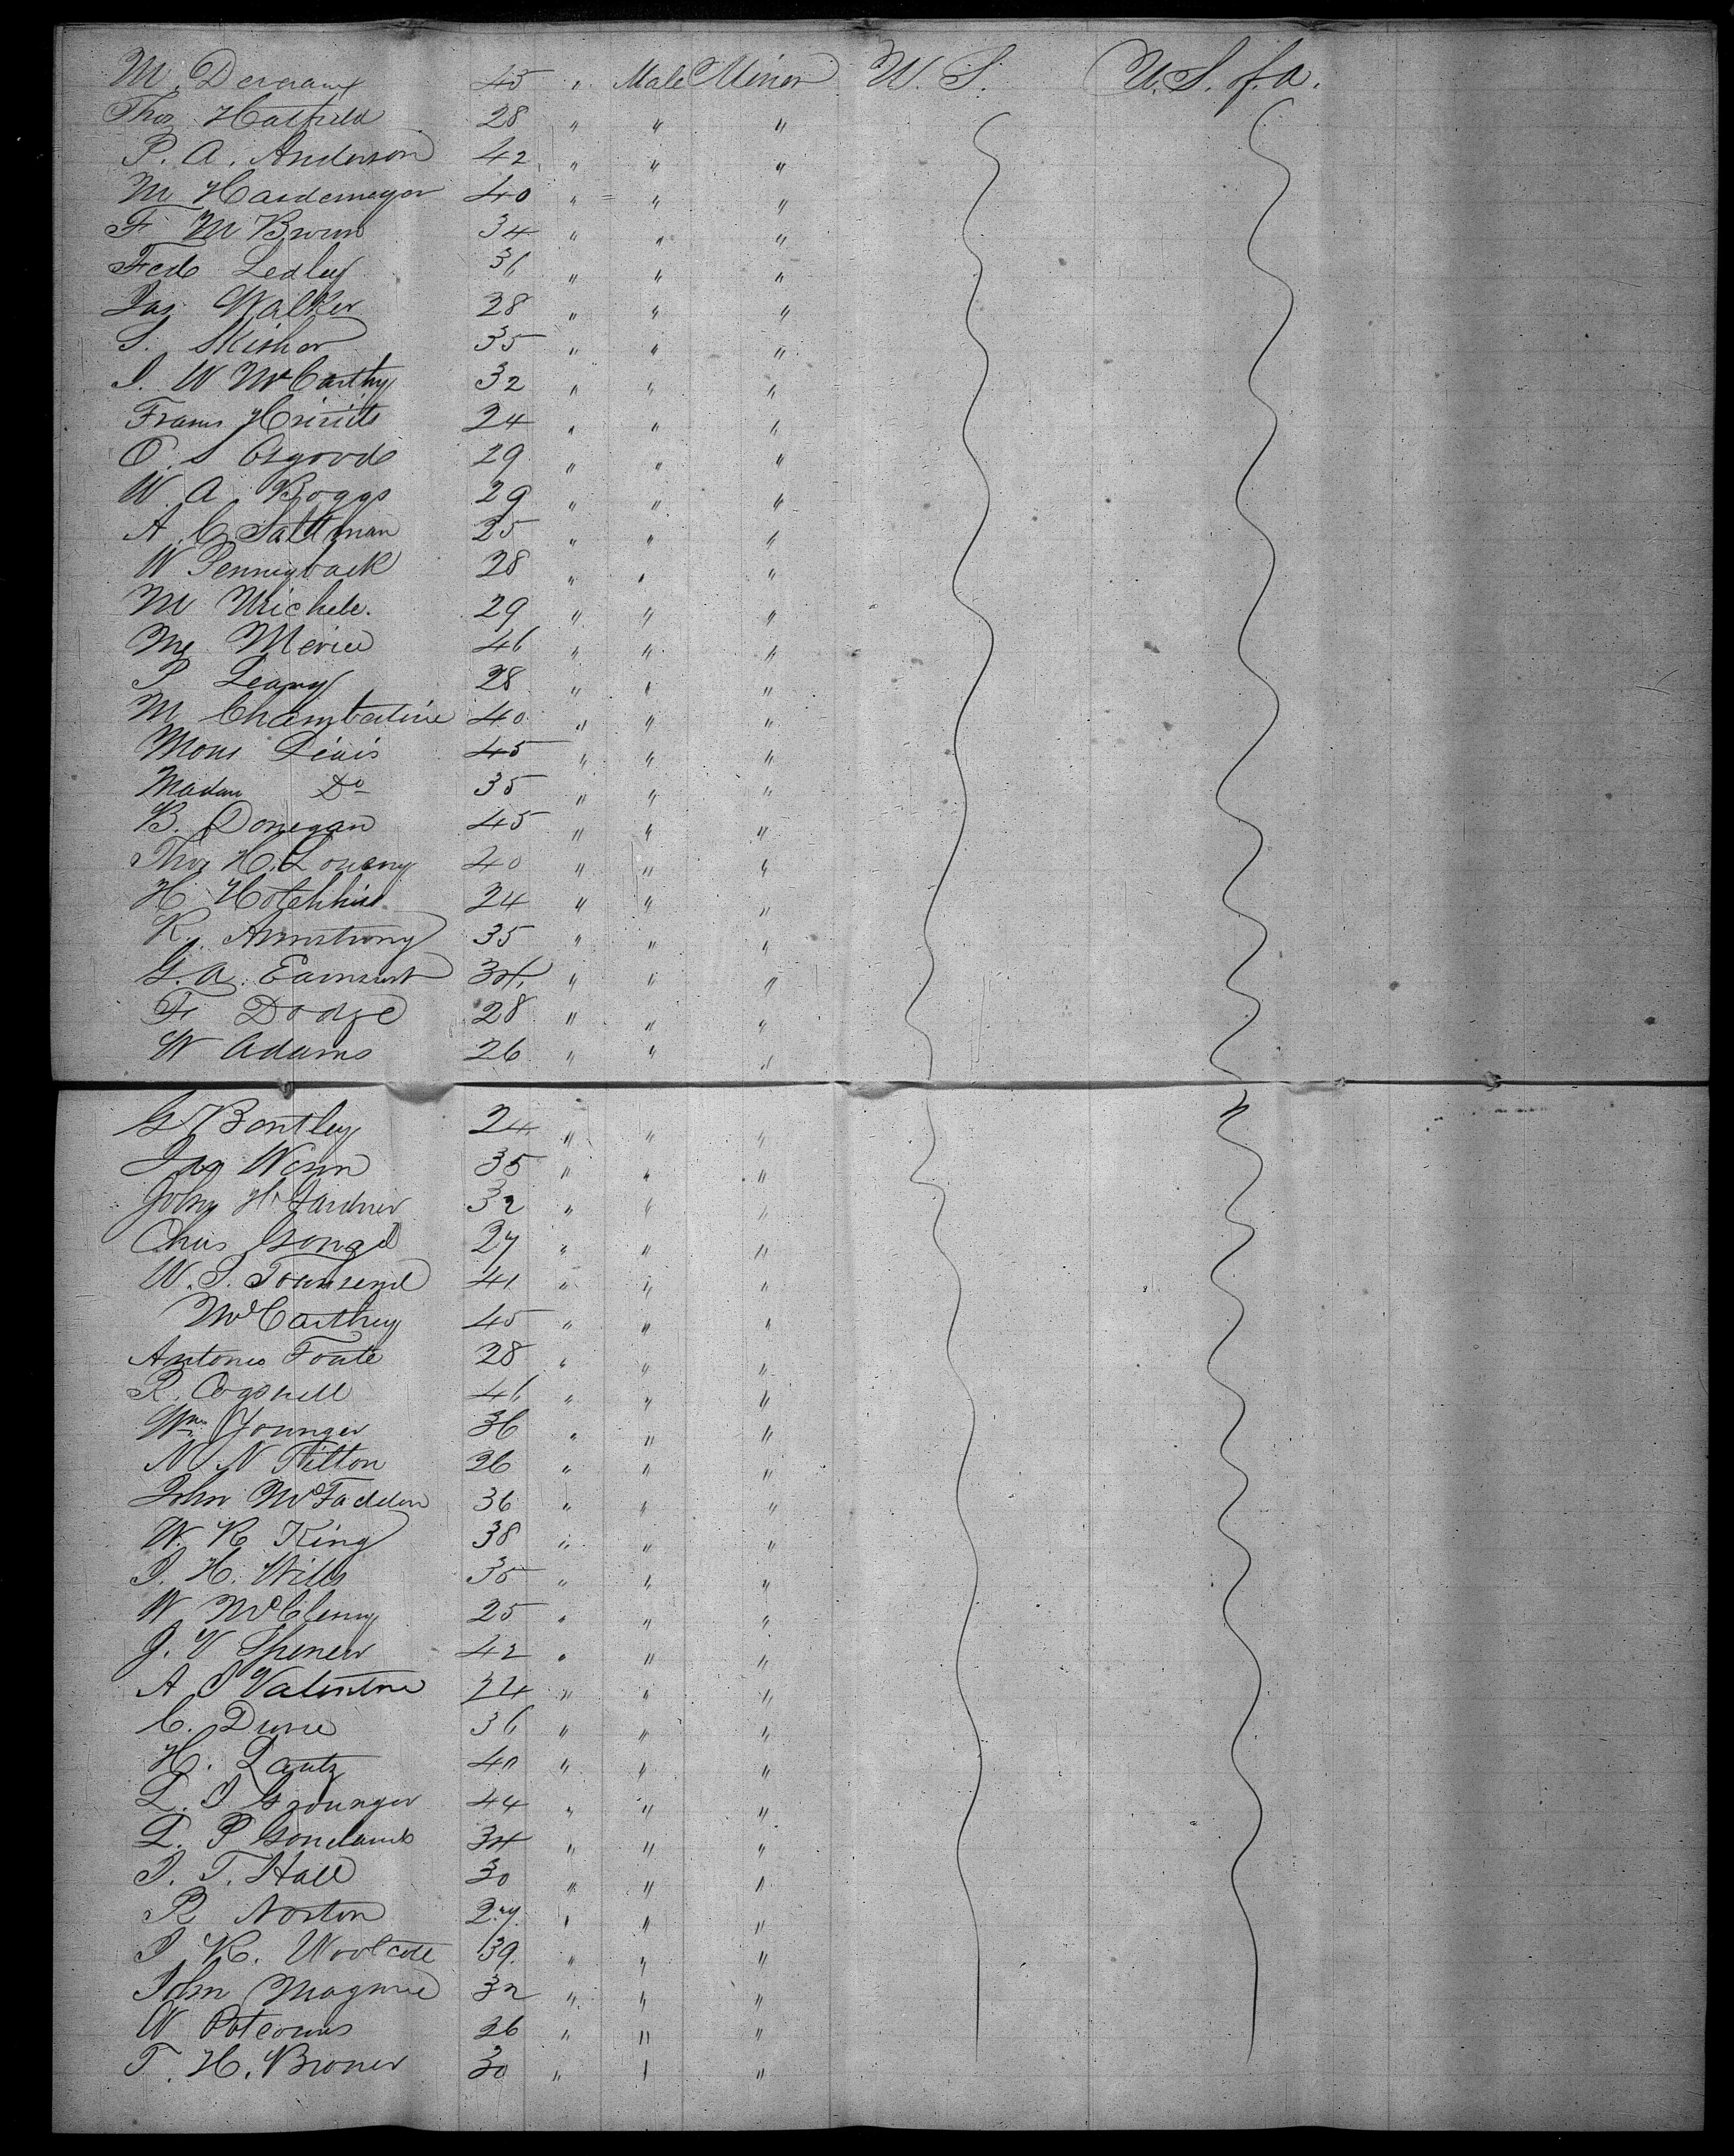 M. 45 " Male Miner U. S. U. S. of a.
Thos Hatfield 28 " " "
P. A. Anderson 42 " " "
M Hardemeyer 40 " " "
F M Brown 34 " " "
Fred Ledley 36 " " "
Jas Walker 28 " " "
S. 35 " " "
J. W McCarthy 32 " " "
24 " " "
O. S Osgood 29 " " "
W. A. Boggs 29 " " "
A. C Saltman 25 " " "
W Pennyback 28 " " "
M Michele. 29 " " "
46 " " "
P Leany 28 " " "
M Chambertine 40 " " "
Mons 45 " " "
Madam Do 35 " " "
B. Donegan 45 " " "
Thos H. 40 " " "
H Hotchkiss 24 " " "
R. Armstrong 35 " " "
G. A. Earnsert 34 " " "
F Dodge 28 " " "
W Adams 26 " " "
G Bentley 24 " " "
Jas Wenn 35 " " "
John H. Gardner 32 " " "
Chas 27 " " "
W. S. Townsend 41 " " "
McCarthey 45 " " "
Antonio Foute 28 " " "
R. Cogswell 46 " " "
Wm Younger 36 " " "
N. N Tilton 26 " " "
John McFadden 36 " " "
W. R King 38 " " "
J. H. Wills 35 " " "
W McCleny 25 " " "
J. V Spencer 42 " " "
A J Valentine 24 " " "
C. 36 " " "
H. Lautz 40 " " "
L. J 44 " " "
L. P 34 " " "
J. T. Hall 30 " " "
R Norton 27 " " "
J R. Woolcott 39 " " "
John Maguire 32 " " "
W 26 " " "
T. H. Broner 30 " " "